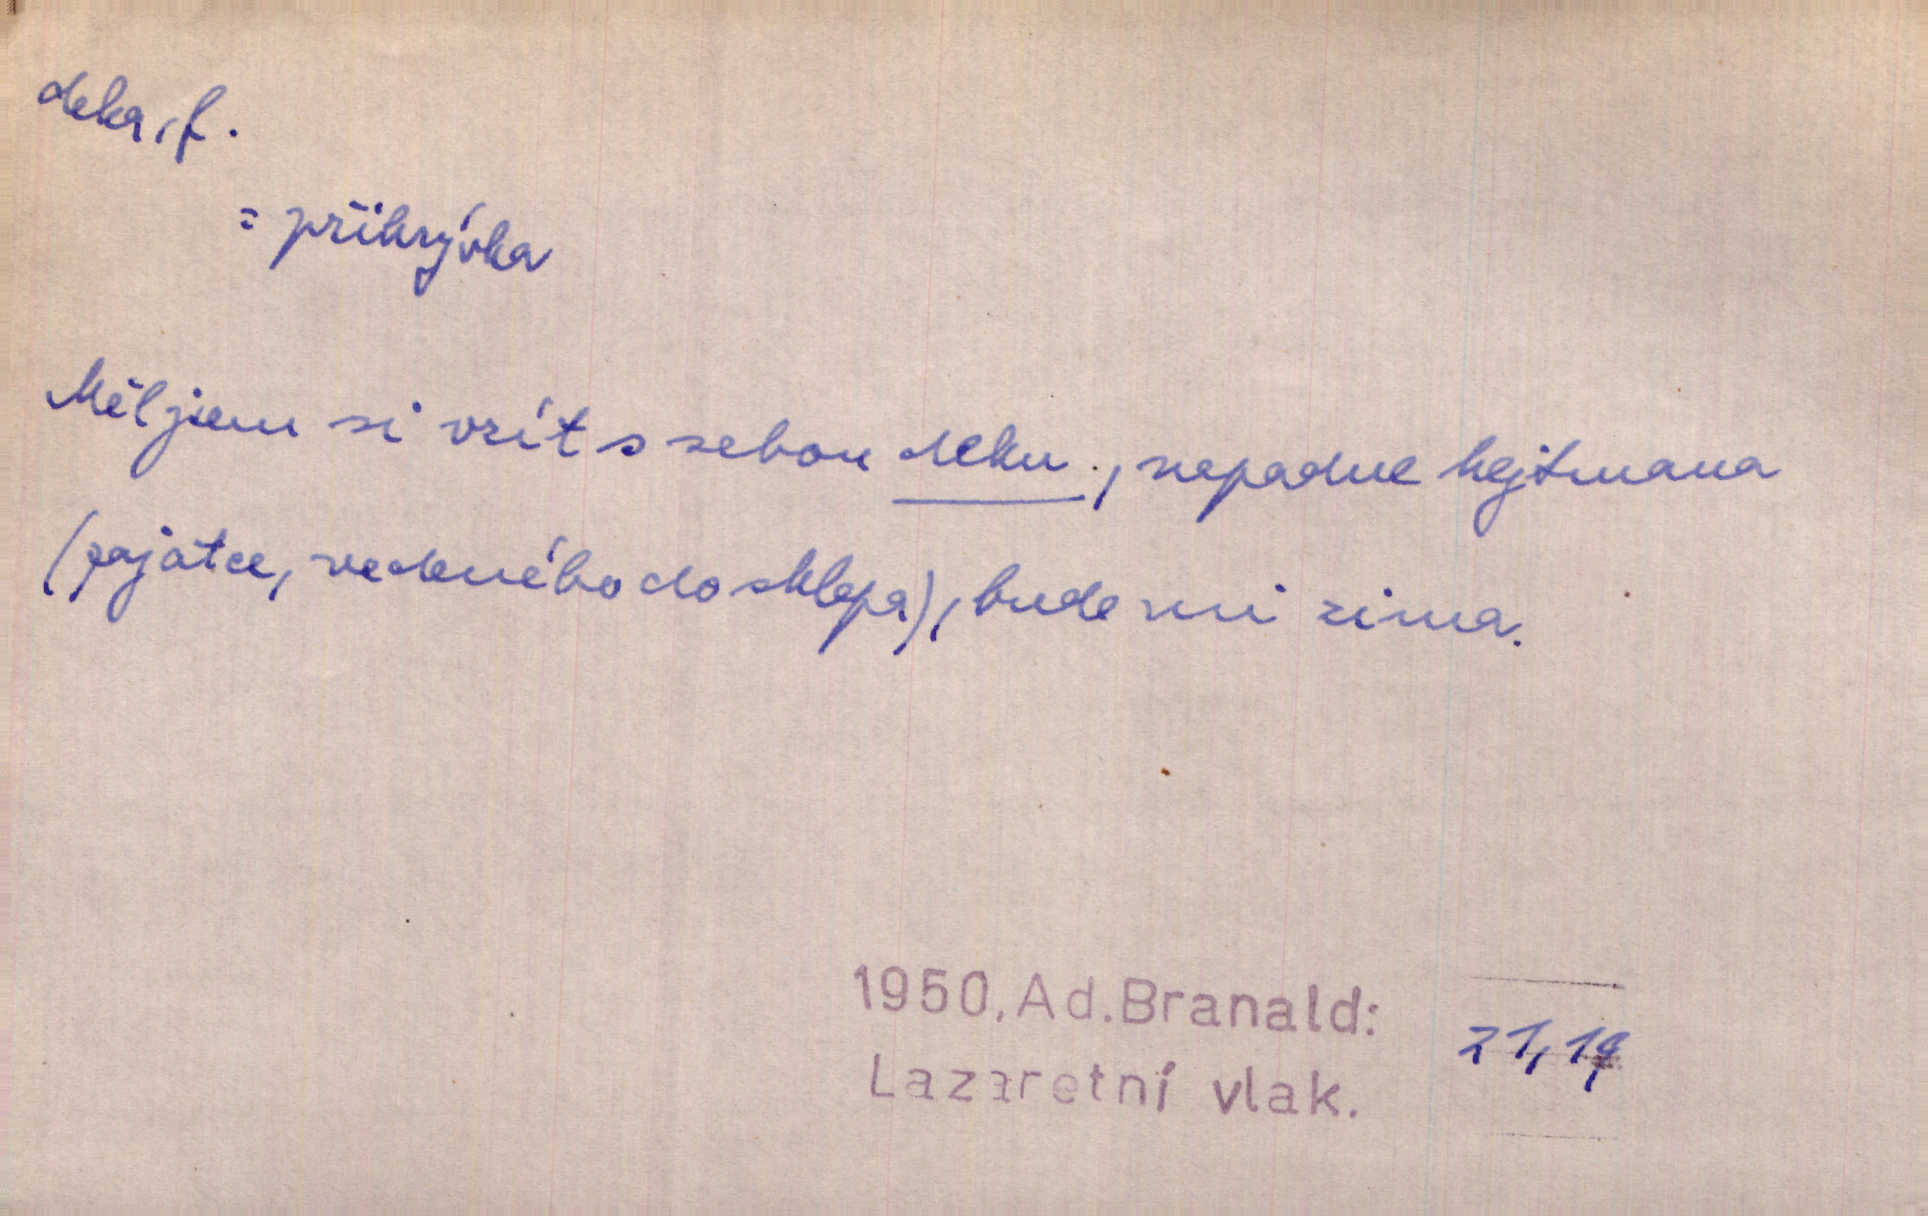 deka, f.
= přikrývka
Měl jsem si vzít s sebou deku., napadne hejtmana
(zajatce, vedeného do sklepa), bude mi zima.
1950, Ad. Branald:
Lazaretní vlak.
21, 19